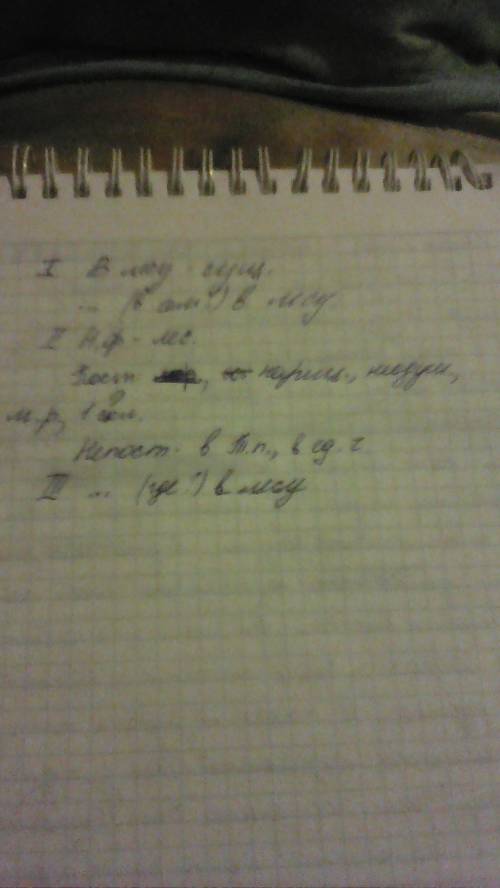 I В лесу - сущ.
... (в чём?) в лесу
II Н.ф - лес.
Пост. нариц., неодуш,
м.р, 2 скл.
Непост. в П.п., в ед. ч
III ... (где?) в лесу